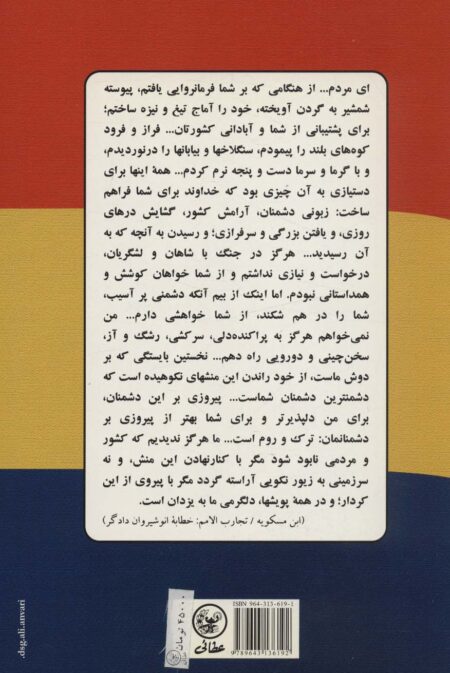 ای مردم... از هنگامی که بر شما فرمانروایی یافتم، پیوسته
شمشیر به گردن آویخته، خود را آماج تیغ و نیزه ساختم؛
برای پشتیبانی از شما و آبادانی کشورتان... فراز و فرود
کوه‌های بلند را پیمودم، سنگلاخها و بیابانها را درنوردیدم،
و با گرما و سرما دست و پنجه نرم کردم... همهٔ اینها برای
دستیازی به آن چیزی بود که خداوند برای شما فراهم
ساخت: زبونی دشمنان، آرامش کشور، گشایش درهای
روزی، و یافتن بزرگی و سرفرازی؛ و رسیدن به آنچه که به
آن رسیدید... هرگز در جنگ با شاهان و لشگریان،
درخواست و نیازی نداشتم و از شما خواهان کوشش و
همداستانی نبودم. اما اینک از بیم آنکه دشمنی پر آسیب،
شما را در هم شکند، از شما خواهشی دارم... من
نمی‌خواهم هرگز به پراکنده‌دلی، سرکشی، رشگ و آز،
سخن‌چینی و دورویی راه دهم... نخستین بایستگی که بر
دوش ماست، از خود راندن این منشهای نکوهیده است که
دشمنترین دشمنان شماست... پیروزی بر این دشمنان،
برای من دلپذیرتر و برای شما بهتر از پیروزی بر
دشمنانمان: ترک و روم است... ما هرگز ندیدیم که کشور
و مردمی نابود شود مگر با کنارنهادن این منش، و نه
سرزمینی به زیور نکویی آراسته گردد مگر با پیروی از این
کردار؛ و در همهٔ پویشها، دلگرمی ما به یزدان است.
(ابن مسکویه / تجارب الامم: خطابهٔ انوشیروان دادگر)
dsg.ali.anvari.
۴۵۰۰۰ تومان
عطائی
ISBN 964-313-619-1
9 789643 136192